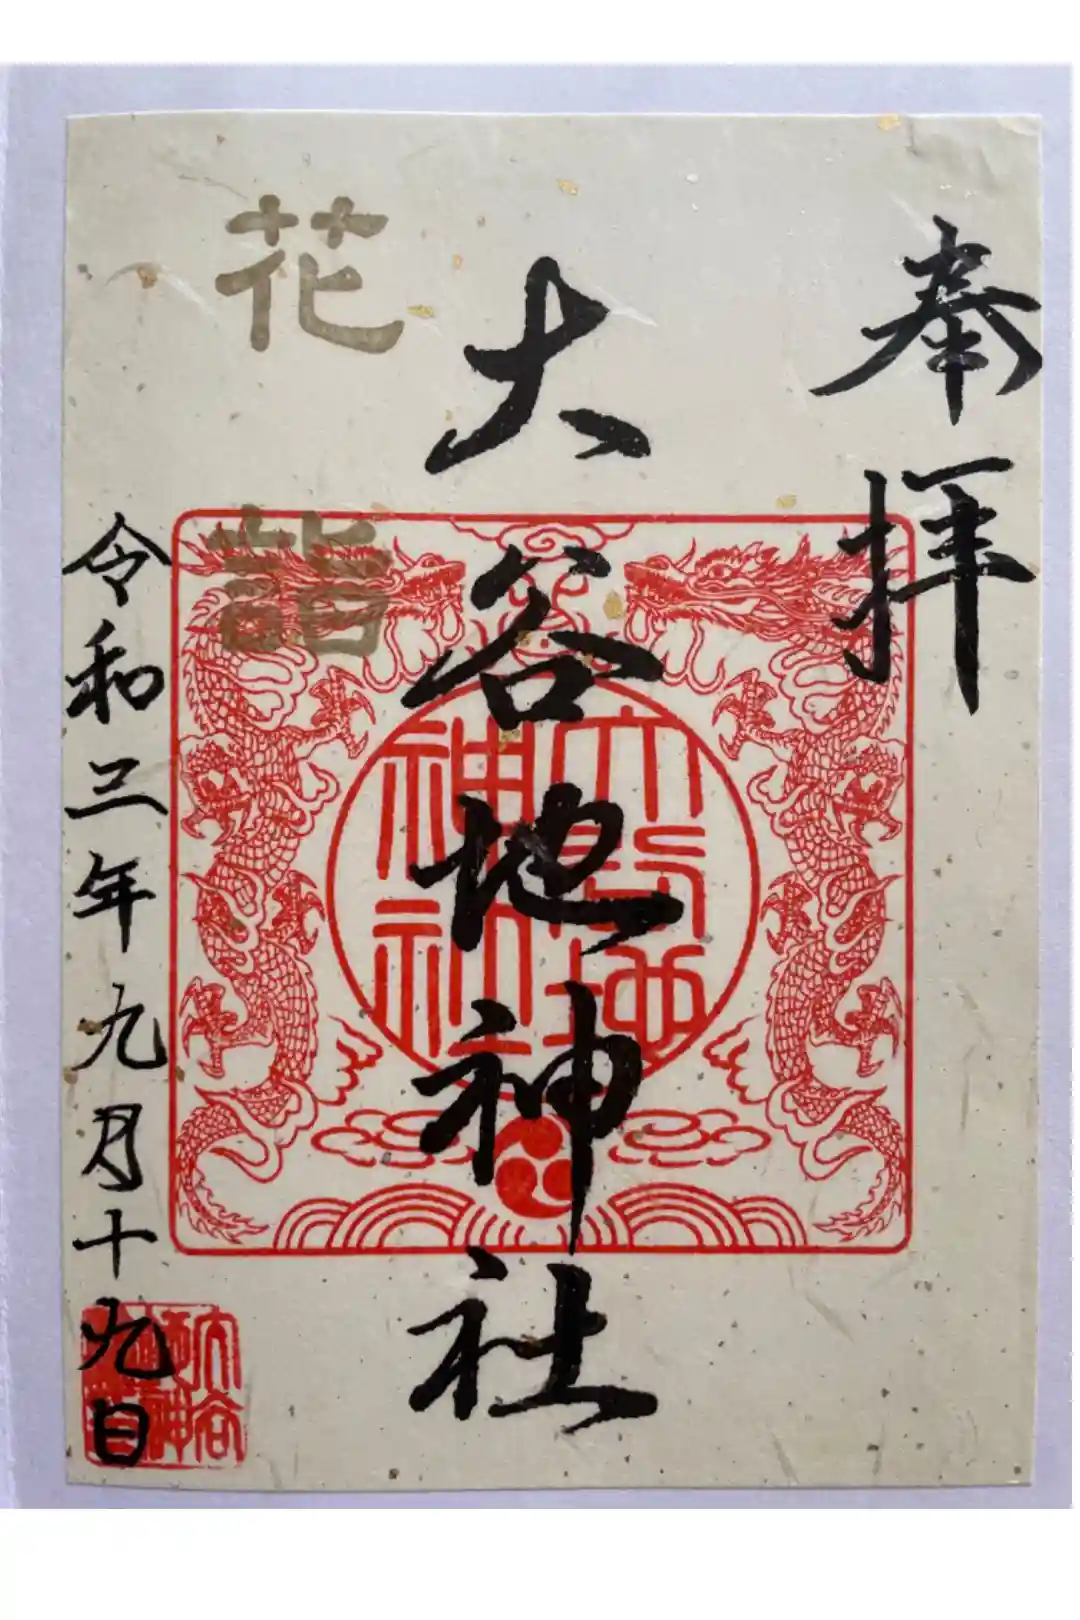 奉拝
大谷地神社
花詣
令和三年九月十九日
大谷地
神社